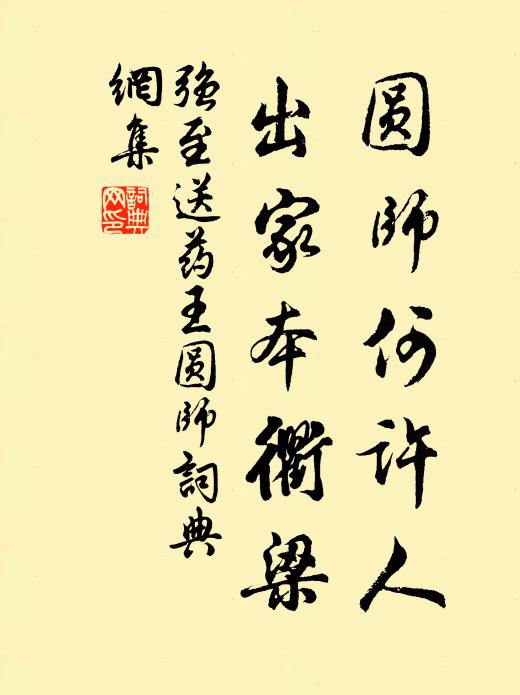 圆师何许人
出家本衢梁
强至送药王圆师词典
網集
詞典網印